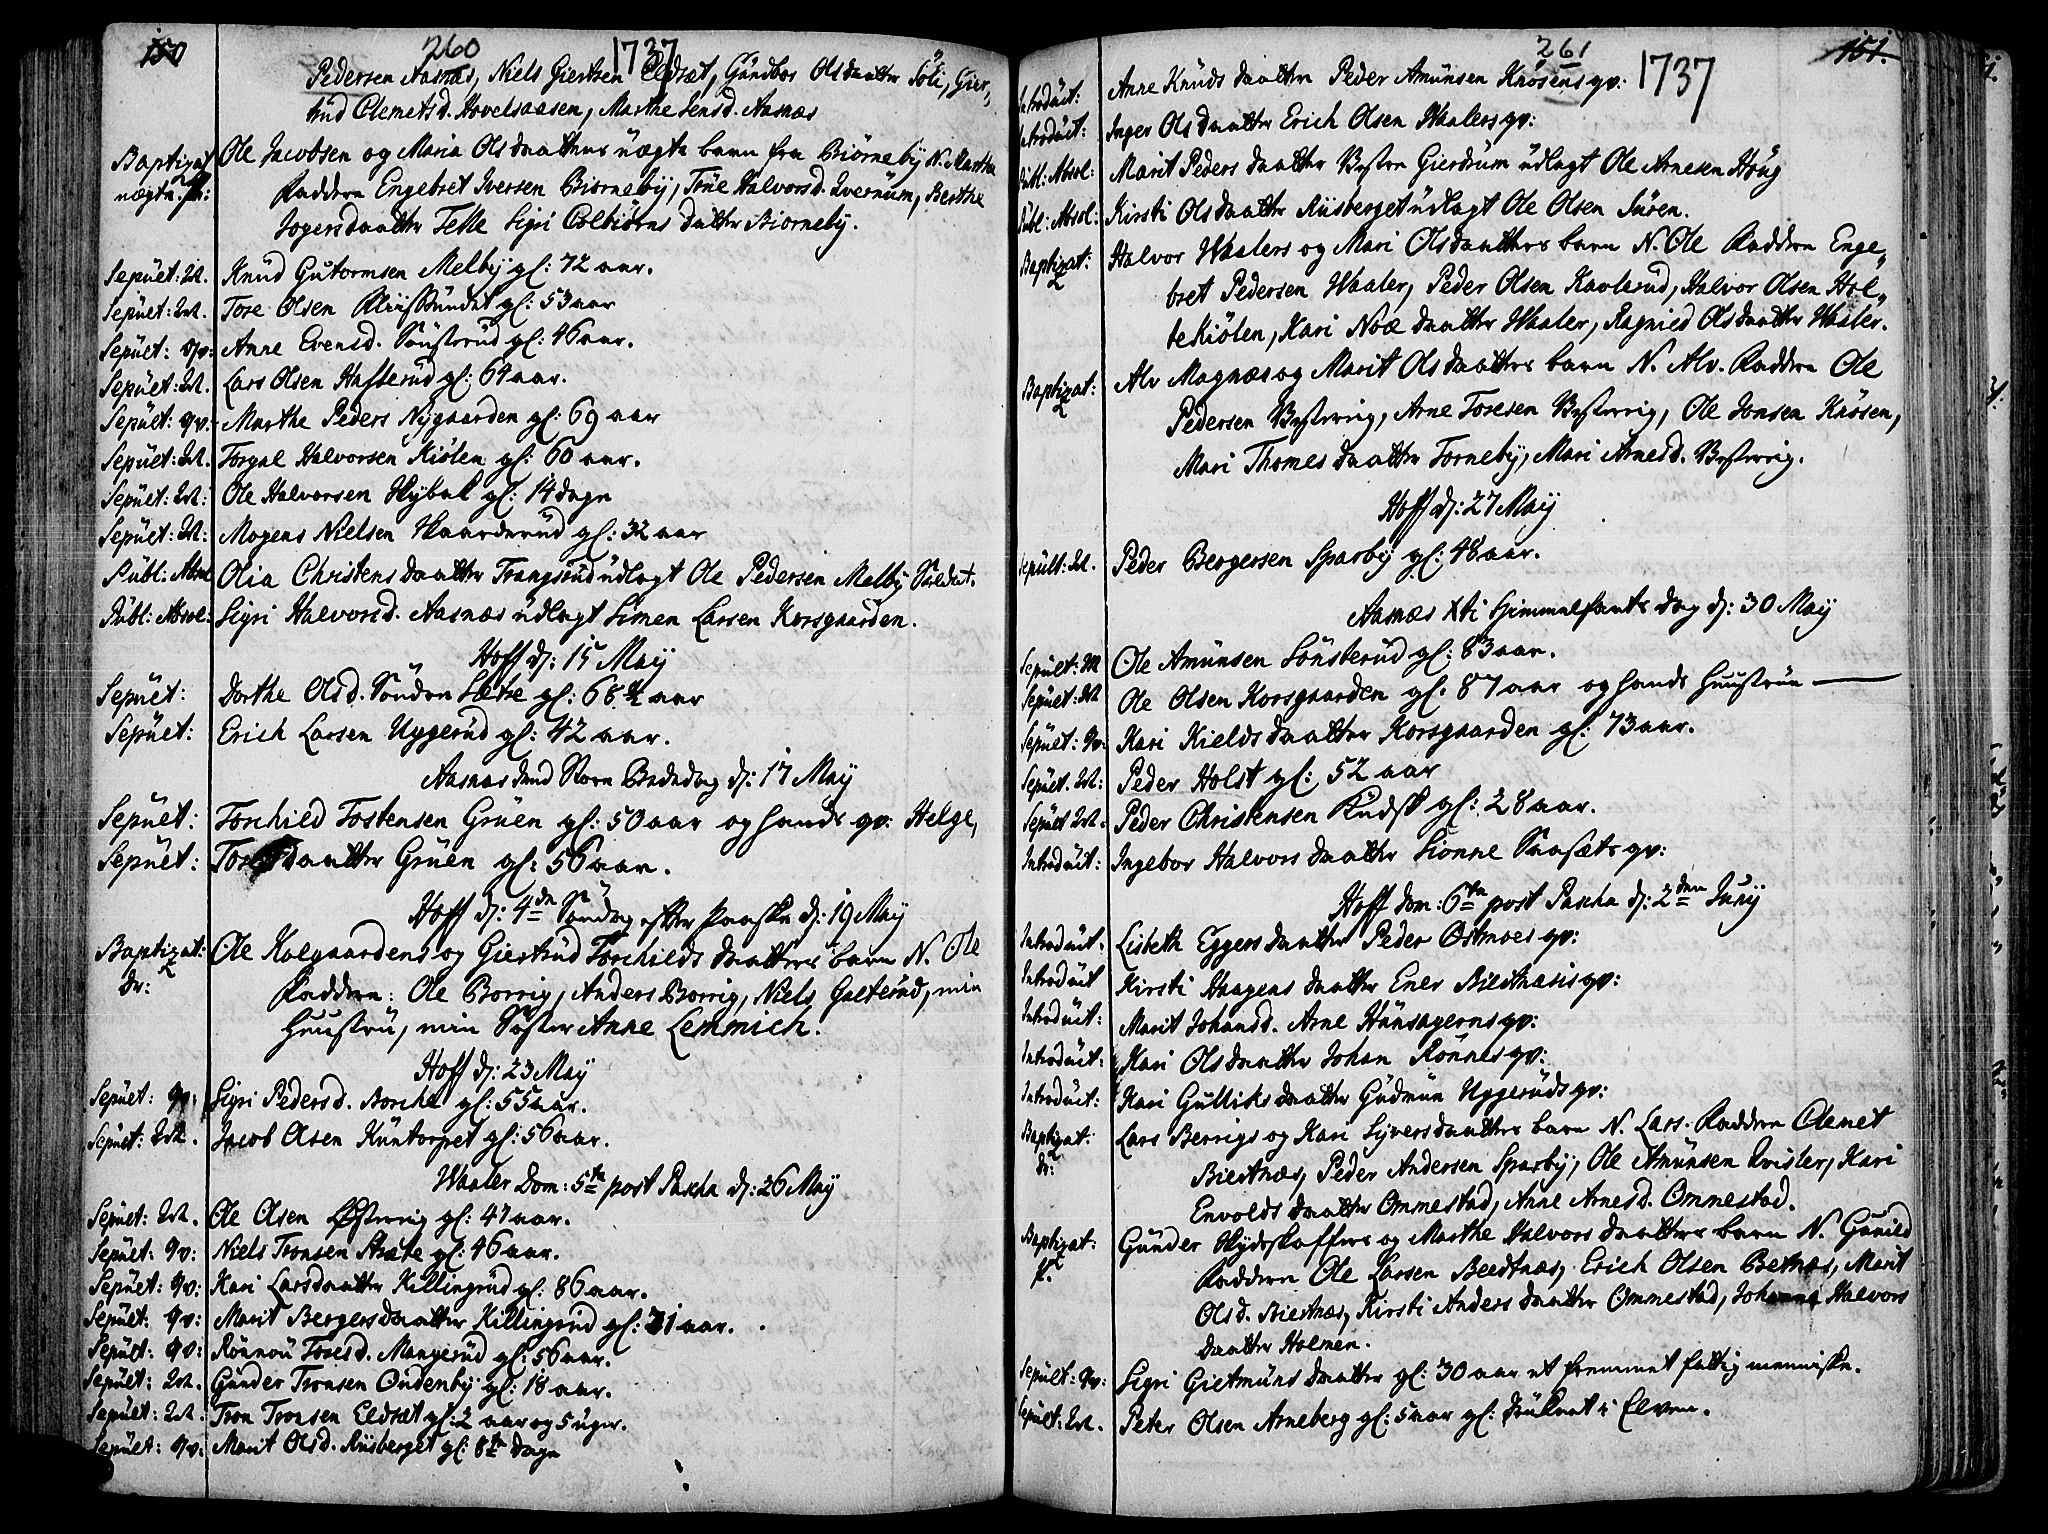 150
260
1737
Pedersen Aasnæs, Niels Giertsen Eldsæt, Gündbor Olsdaatter Söli, Gier„
trud Clemetsd. Hovelsaasen, Marthe Jensd. Aasnæs
Baptizat: Ole Jacobsen og Maria Olsdaatters uægte barn fra Biörneby N. Marthe
uægte Faddere Engebret Iversen Biörneby, True Halvorsd. Ivernum, Berthe
daatter Sigri Colbiörns datter Biörneby.
Sepuet: Knud Gutormsen Melby gl: 72 aar.
Sepuet: Tore Olsen gl: 53 aar
Sepuet: qv: Anne Evensd. Sönsterud gl: 46 aar.
Sepuet: Lars Olsen Hafterud gl: 64 aar.
Sepuet: qv: Marthe Peders Nygaarden gl: 69 aar
Sepuet: Torgal Halvorsen Kiölen gl: 60 aar.
Sepuet: Ole Halvorsen Skybak gl: 14 dage
Sepuet: Mogens Nielsen Skaarderud gl: 32 aar
Publ: Absol Olia Christens daatter Trangsrud udlagt Ole Pedersen Melby Soldat.
Publ: Absol: Sigri Halvorsd. Aasnæs udlagt Simen Larsen Korsgaarden.
Hoff d: 15 May
Sepuet: Dorthe Olsd. Söndre Sætre gl: 68 ½ aar
Sepuet: Erich Larsen Uggerud gl: 42 aar.
Aasnæs dend Store Bededag d: 17 May
Sepuet: Torchild Tostensen Gruen gl: 50 aar og hands qv: Helge,
Sepuet: daatter Gruen gl: 56 aar.
Hoff d: 4de Söndag efter Paaske d: 19 May
Baptizat: Ole Kalgaardens og Giertrud Torchilds daatters barn N. Ole
dr: Faddere: Ole Borrig, Anders Borrig, Niels Galterud, min
Huustru, min Söster Anne Lemmich.
Hoff d: 23 May
Sepuet: qv: Sigri Pedersd. Borche gl: 55 aar.
Sepuet: Jacob Olsen Kuntorpet gl: 56 aar.
Waaler Dom: 5te post Pascha d: 26 May
Sepuet: Ole Olsen Östverig gl: 47 aar.
Sepuet: qv: Niels Tronsen gl: 46 aar.
Sepuet: qv: Kari Larsdaatter Killingrud gl: 86 aar.
Sepuet: qv: Marit Bergersdaatter Killingrud gl: 71 aar.
Sepuet: qv: Rönnou Toresd. Mangerud gl: 56 aar.
Sepuet: Gunder Tronsen Oudenby gl: 18 aar.
Sepuet: Tron Tronsen Eldsæt gl: 2 aar og 5 uger.
Sepuet: qv: Marit Olsd. Riisberget gl: 8te dage
151.
261
1737
Introduit: Anne Knuds daatter Peder Amunsen Krösens qv:
Introduit: Inger Olsdaatter Erich Olsen Waalers qv:
Publ: Absol: Marit Peders daatter Vestre Gierdrum udlagt Ole Arnesen Houg
Publ: Absol: Kirsti Olsdaatter Riisberget udlagt Ole Olsen Suren.
Baptizat: Halvor Waalers og Mari Olsdaatters barn N. Ole Faddere Enge„
bret Pedersen Waaler, Peder Olsen Kavlerud, Halvor Olsen Hol„
tekiölen, Kari Noæ daatter Waaler, Ragnild Olsdaatter Waaler.
Baptizat: Alv Magnæs og Marit Olsdaatters barn N. Alv. Faddere Ole
Pedersen Vestverig, Arne Toresen Vestverig, Ole Jonsen Krösen,
Mari Thomes daatter Torneby, Mari Arnesd. Vestverig.
Hoff d: 27 May
Sepult: Peder Bergersen Sparby gl: 48 aar.
Aasnæs Xti Himmelfarts dag d: 30 May
Sepult: Ole Amunsen Sönsterud gl: 83 aar.
Sepuet: Ole Olsen Korsgaarden gl. 87 aar og hands Huustrue
Sepuet: qv: Kari Kieldsdaatter Korsgaarden gl: 73 aar.
Sepuet: Peder Holst gl: 52 aar
Sepuet Peder Christensen gl: 28 aar.
Introduit: Ingebor Halvors daatter Sionne qv:
Hoff Dom: 6te post Pascha d: 2den Juny
Introduit: Lisbeth Eggers daatter Peder Ostmoes qv:
Introduit Kirsti Haagens daatter Ener Biertnæsis qv:
Introduit: Marit Johansd. Arne Hansagerns qv:
Introduit: Kari Olsdaatter Johan Rönnes qv:
Introduit: Kari Gulliks daatter Gudmun Uggeruds qv:
Baptizat: Lars Berrigs og Kari Syversdaatters barn N. Lars. Faddere Clemet
dr: Biertnæs, Peder Andersen Sparby, Ole Amunsen Qvisler, Kari
Envolds daatter Ommestad, Anne Arnesd. Ommestad.
Baptizat: Gunder Skydskaffers og Marthe Halvors daatters barn N. Gunild
P. Faddere Ole Larsen Beedtnæs, Erich Olsen Betnæs, Marit
Olsd. Biertnæs, Kirsti Anders daatter Ommestad, Johanne Halvors
daatter Holmen.
Sepult: qv: Sigri Gietmunds daatter gl: 30 aar et fremmet fattig menniske.
Sepult: Peter Olsen Arneberg gl: 5 aar gl: druknet i Elven.